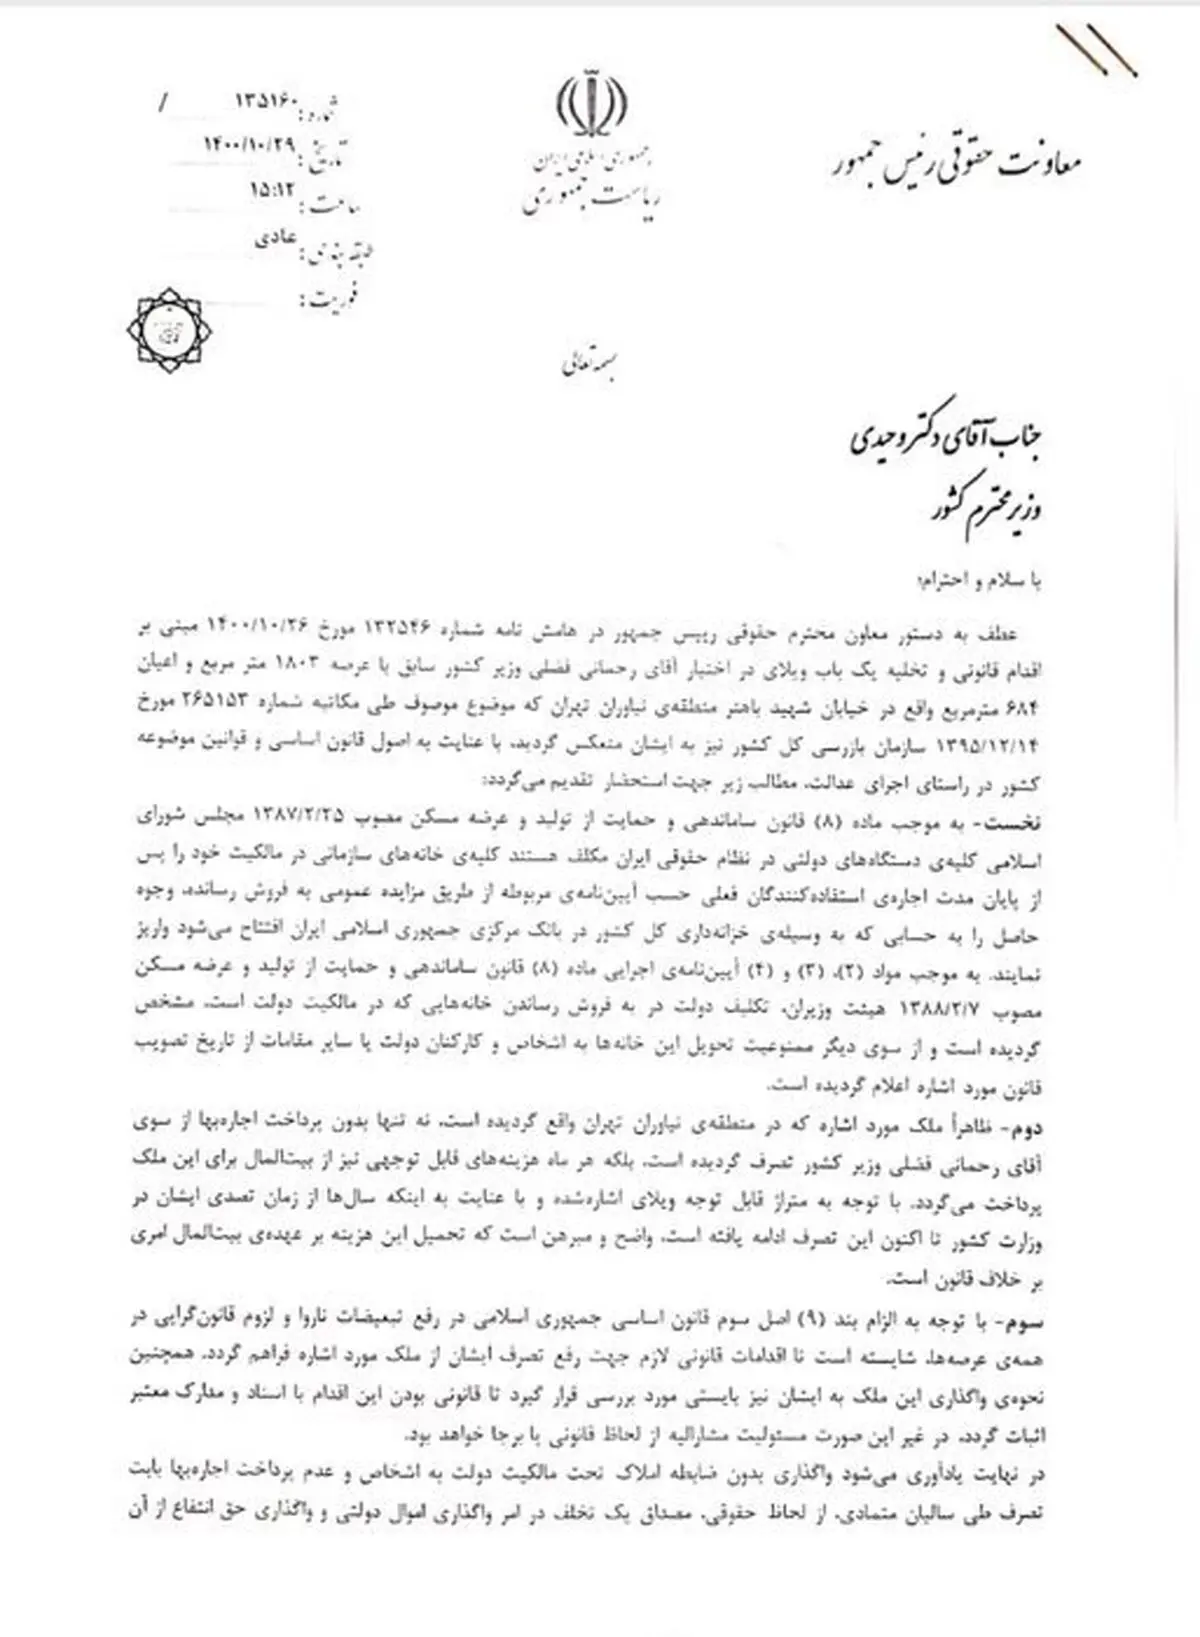 معاونت حقوقی رئیس جمهور
جمهوری اسلامی ایران
ریاست جمهوری
شماره: ۱۳۵۱۶۰ /
تاریخ: ۱۴۰۰/۱۰/۲۹
ساعت: ۱۵:۱۲
طبقه بندی: عادی
فوریت:
بسمه تعالی
جناب آقای دکتر وحیدی
وزیر محترم کشور
با سلام و احترام؛
عطف به دستور معاون محترم حقوقی رییس جمهور در هامش نامه شماره ۱۳۲۵۴۶ مورخ ۱۴۰۰/۱۰/۲۶ مبنی بر
اقدام قانونی و تخلیه یک باب ویلای در اختیار آقای رحمانی فضلی وزیر کشور سابق با عرصه ۱۸۰۳ متر مربع و اعیان
۶۸۴ مترمربع واقع در خیابان شهید باهنر منطقه‌ی نیاوران تهران که موضوع موصوف طی مکاتبه شماره ۲۶۵۱۵۳ مورخ
۱۳۹۵/۱۲/۱۴ سازمان بازرسی کل کشور نیز به ایشان منعکس گردید، با عنایت به اصول قانون اساسی و قوانین موضوعه
کشور در راستای اجرای عدالت، مطالب زیر جهت استحضار تقدیم می‌گردد:
نخست- به موجب ماده (۸) قانون ساماندهی و حمایت از تولید و عرضه مسکن مصوب ۱۳۸۷/۲/۲۵ مجلس شورای
اسلامی کلیه‌ی دستگاه‌های دولتی در نظام حقوقی ایران مکلف هستند کلیه‌ی خانه‌های سازمانی در مالکیت خود را پس
از پایان مدت اجاره‌ی استفاده‌کنندگان فعلی حسب آیین‌نامه‌ی مربوطه از طریق مزایده عمومی به فروش رسانده، وجوه
حاصل را به حسابی که به وسیله‌ی خزانه‌داری کل کشور در بانک مرکزی جمهوری اسلامی ایران افتتاح می‌شود واریز
نمایند. به موجب مواد (۲)، (۳) و (۴) آیین‌نامه‌ی اجرایی ماده (۸) قانون ساماندهی و حمایت از تولید و عرضه مسکن
مصوب ۱۳۸۸/۲/۷ هیئت وزیران، تکلیف دولت در به فروش رساندن خانه‌هایی که در مالکیت دولت است، مشخص
گردیده است و از سوی دیگر ممنوعیت تحویل این خانه‌ها به اشخاص و کارکنان دولت یا سایر مقامات از تاریخ تصویب
قانون مورد اشاره اعلام گردیده است.
دوم- ظاهراً ملک مورد اشاره که در منطقه‌ی نیاوران تهران واقع گردیده است، نه تنها بدون پرداخت اجاره‌بها از سوی
آقای رحمانی فضلی وزیر کشور تصرف گردیده است، بلکه هر ماه هزینه‌های قابل توجهی نیز از بیت‌المال برای این ملک
پرداخت می‌گردد. با توجه به متراژ قابل توجه ویلای اشاره‌شده و با عنایت به اینکه سال‌ها از زمان تصدی ایشان در
وزارت کشور تا اکنون این تصرف ادامه یافته است، واضح و مبرهن است که تحمیل این هزینه بر عهده‌ی بیت‌المال امری
بر خلاف قانون است.
سوم- با توجه به الزام بند (۹) اصل سوم قانون اساسی جمهوری اسلامی در رفع تبعیضات ناروا و لزوم قانون‌گرایی در
همه‌ی عرصه‌ها، شایسته است تا اقدامات قانونی لازم جهت رفع تصرف ایشان از ملک مورد اشاره فراهم گردد. همچنین
نحوه‌ی واگذاری این ملک به ایشان نیز بایستی مورد بررسی قرار گیرد تا قانونی بودن این اقدام با اسناد و مدارک معتبر
اثبات گردد. در غیر این صورت مسئولیت مشارالیه از لحاظ قانونی پا برجا خواهد بود.
در نهایت یادآوری می‌شود واگذاری بدون ضابطه املاک تحت مالکیت دولت به اشخاص و عدم پرداخت اجاره‌بها بابت
تصرف طی سالیان متمادی، از لحاظ حقوقی، مصداق یک تخلف در امر واگذاری اموال دولتی و واگذاری حق انتفاع از آن